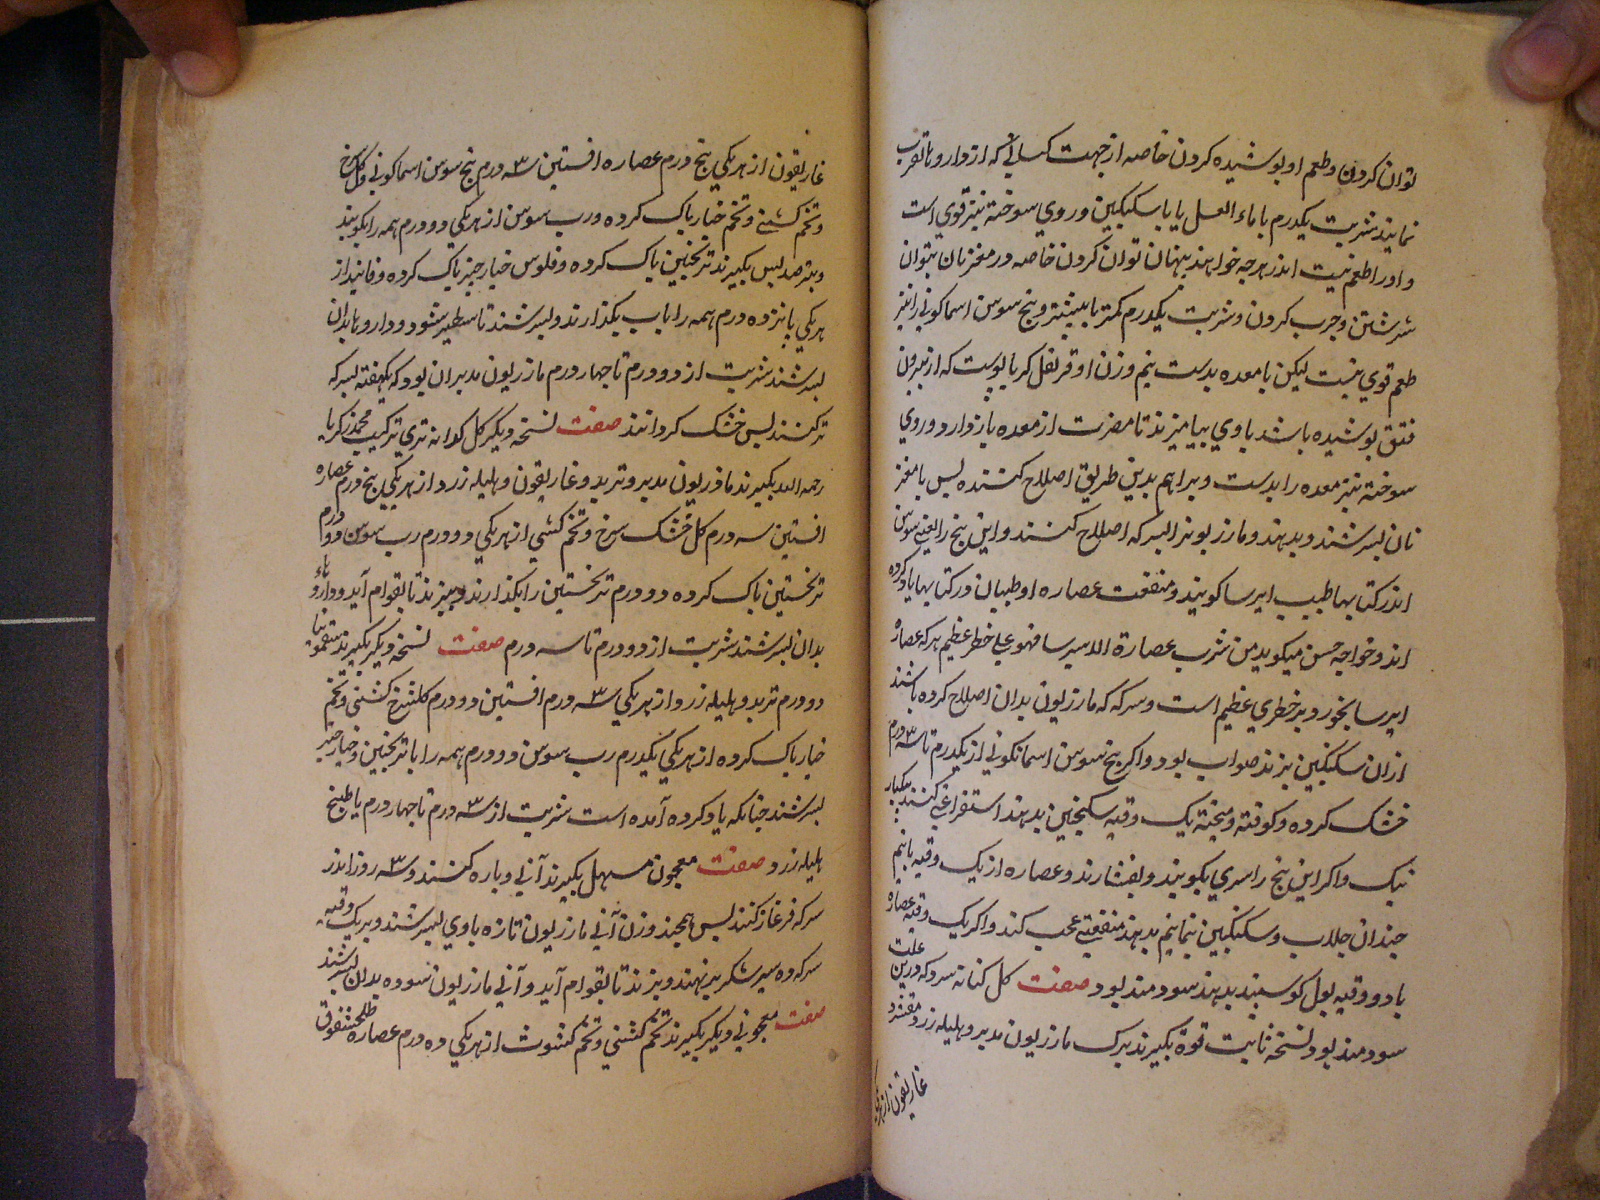 توان کردن و طعم او پوشیده کردن خاصه از جهت کسانی که از داروها تقرب
نمایند شربت یکدرم با ماء العسل یا با سکنکبین و روی سوخته نیز قوی است
و او را طعم نیست اندر هرچه خواهند پنهان توان کردن خاصه در مغز نان بتوان
سرشتن و چرب کردن و شربت یکدرم کمتر یا بیشتر و بیخ سوسن اسمانکونی را نیز
طعم قوی نیست لیکن با معده بدست نیم وزن او قرنفل کر یا پوست که از بیرون
فتق پوشیده باشد با وی بیامیزند تا مضرت از معده باز دارد و روی
سوخته نیز معده را بدست ویرا هم بدین طریق اصلاح کننده پس با مغز
نان بسرشند و بدهند و مازریون را بسرکه اصلاح کنند و این بیخ را یعنی سوسن
اندر کتابها طبیب ایرسا کویند و منفعت عصاره او طبیبان در کتابها یاد کرده
اند و خواجه حسن میکوید من شرب عصارة الایرسا فهو علی خطر عظیم هر که عصاره
ایرسا بخورد بر خطری عظیم است و سرکه که مازریون بدان اصلاح کرده باشند
از ان سکنکبین بزند صواب بود و اکر بیخ سوسن اسمانکونی از یکدرم تا سه درم
خشک کرده و کوفته و بیخته یک وقیه سکنجبین بدهند استفراغی کنند یکبار
نیک و اکر این بیخ را سری بکوبند و بفشارند و عصاره از یک وقیه یا نیم
چندان جلاب و سکنکبین نیمانیم بدهند منفعتی عجب کند و اکر یک وقیه عصاره
با دو وقیه بول کوسپند بدهند سودمند بود صفت کل کنانه سرو که درین علت
سودمند بود نسخه ثابت قوة بکیرند برک مازریون مدبر و هلیله زرد و مقشر و
غاریقون از هریکی
غاریقون از هریکی پنج درم عصاره افسنتین سه درم بیخ سوسن اسمانکونی و کل سرخ
و تخم کشنی و تخم خیار پاک کرده و رب سوس از هریکی دو درم همه را بکوبند
و بیزند پس بکیرند ترنجبین پاک کرده و فلوس خیار چنبر پاک کرده و فانید از
هریکی پانزده درم همه را باب بکدازند و بسرشند تا سطبر شود و داروها بدان
بسرشند شربت از دو درم تا چهار درم مازریون مدبر ان بود که یکهفته بسرکه
تر کنند پس خشک کردانند صفت نسخه دیکر کل کدانه تری ترکیب محمد زکریا
رحمه الله بکیرند مازریون مدبر و تربد و غاریقون و هلیله زرد از هریکی پنج درم عصاره
افسنتین سه درم کل خشک سرخ و تخم کشنی از هریکی دو درم رب سوس دو درم
ترنجبین پاک کرده دو درم ترنجبین را بکدازند و بپزند تا بقوام آید و داروهاء
بدان بسرشند شربت از دو درم تا سه درم صفت نسخه دیکر بکیرند سقمونیا
دو درم تربد و هلیله زرد از هریکی سه درم افسنتین دو درم کلسرخ کشنی و تخم
خیار پاک کرده از هریکی یکدرم رب سوس دو درم همه را با ترنجبین و خیار چنبر
بسرشند چنانکه یاد کرده آمده است شربت از سه درم تا چهار درم با طبیخ
هلیله زرد صفت معجون مسهل بکیرند آنی دو پاره کنند و سه روز اندر
سرکه فرغار کنند پس همچند وزن آنی مازریون تازه با وی بسرشند و بر یک وقیه
سرکه ده سیر شکر برنهند و بزند تا بقوام آید و آنی مازریون سوده بدان بسرشند
صفت معجونی دیکر بکیرند تخم کشنی و تخم کشوث از هریکی ده درم عصاره